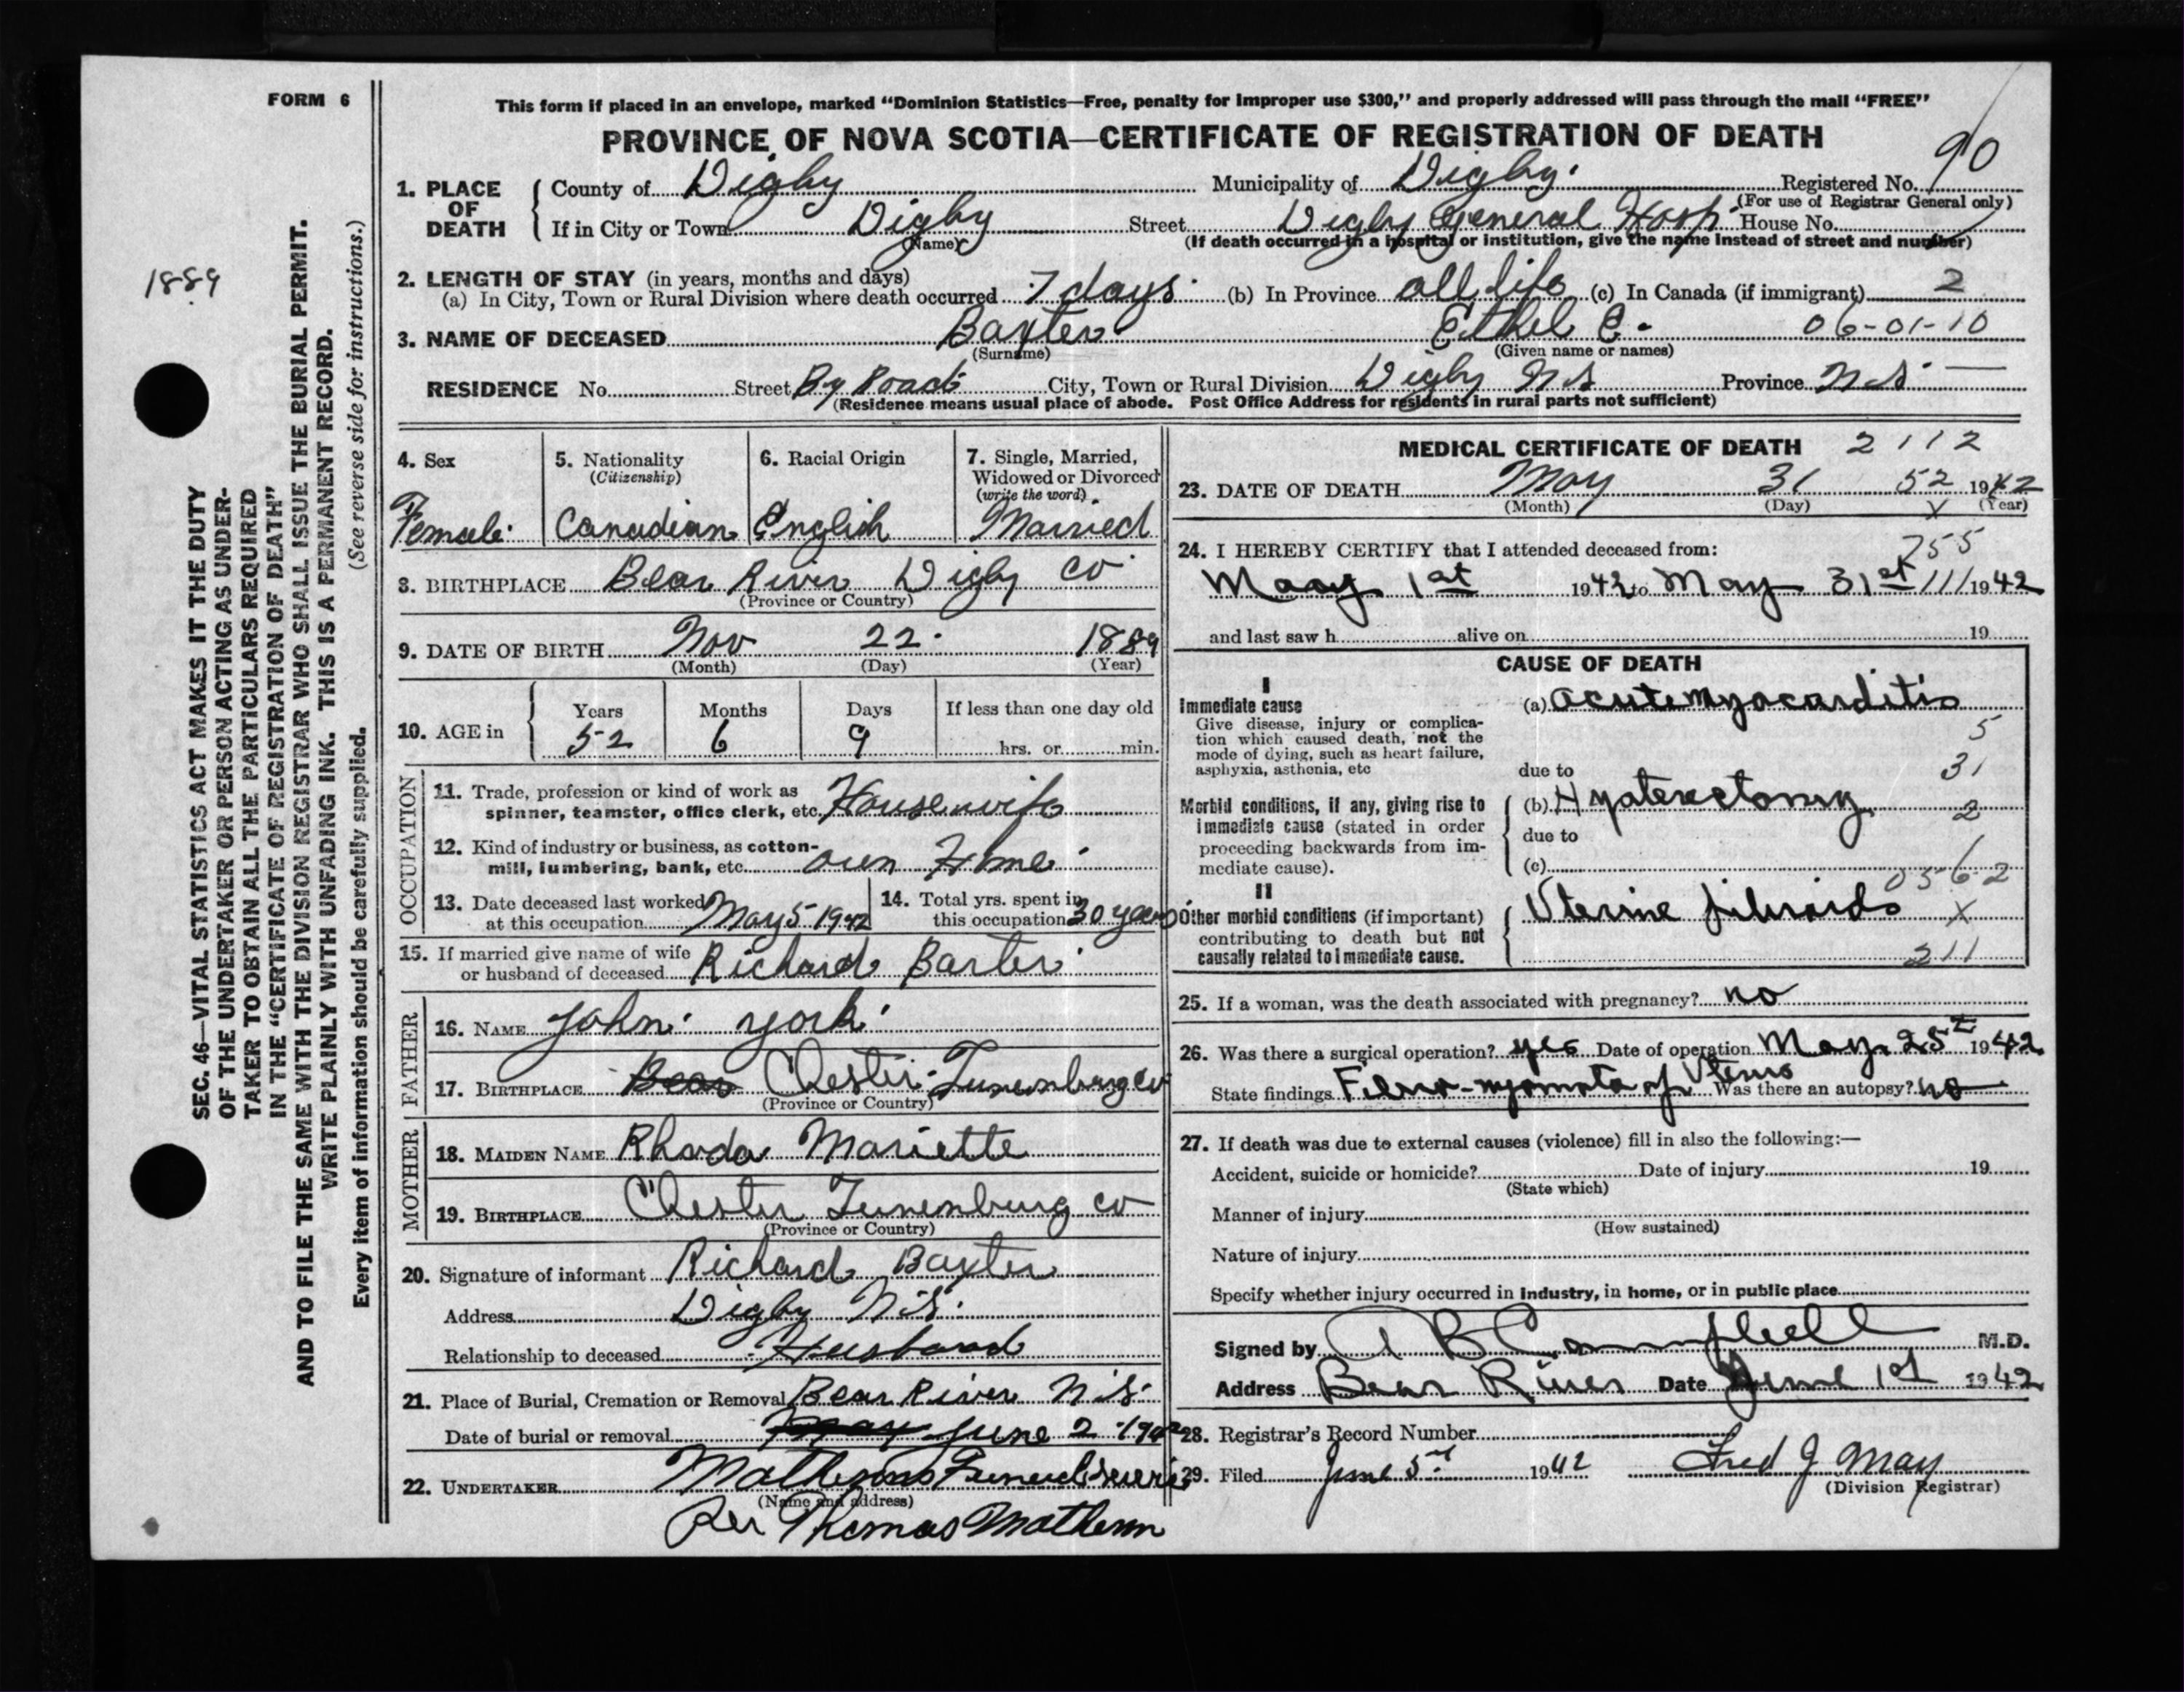 FORM 6
This form if placed in an envelope, marked "Dominion Statistics—Free, penalty for improper use $300," and properly addressed will pass through the mail "FREE"
PROVINCE OF NOVA SCOTIA—CERTIFICATE OF REGISTRATION OF DEATH
90
1889
SEC. 46—VITAL STATISTICS ACT MAKES IT THE DUTY
OF THE UNDERTAKER OR PERSON ACTING AS UNDER-
TAKER TO OBTAIN ALL THE PARTICULARS REQUIRED
IN THE "CERTIFICATE OF REGISTRATION OF DEATH"
AND TO FILE THE SAME WITH THE DIVISION REGISTRAR WHO SHALL ISSUE THE BURIAL PERMIT.
WRITE PLAINLY WITH UNFADING INK. THIS IS A PERMANENT RECORD.
Every item of information should be carefully supplied. (See reverse side for instructions.)
1. PLACE OF DEATH County of Digby Municipality of Digby. Registered No.
(For use of Registrar General only)
If in City or Town Digby Street Digby General Hosp. House No.
(Name) (If death occurred in a hospital or institution, give the name instead of street and number)
2. LENGTH OF STAY (in years, months and days)
(a) In City, Town or Rural Division where death occurred 7 days (b) In Province all life (c) In Canada (if immigrant) 2
3. NAME OF DECEASED Baxter Ethel C. 06-01-10
(Surname) (Given name or names)
RESIDENCE No. Street By Road City, Town or Rural Division Digby N S Province N.S. —
(Residence means usual place of abode. Post Office Address for residents in rural parts not sufficient)
4. Sex 5. Nationality 6. Racial Origin 7. Single, Married,
(Citizenship) Widowed or Divorced
(write the word)
Female Canadian English Married
8. BIRTHPLACE Bear River Digby Co
(Province or Country)
9. DATE OF BIRTH Nov 22 1889
(Month) (Day) (Year)
10. AGE in Years Months Days If less than one day old
52 6 9 hrs. or min.
OCCUPATION
11. Trade, profession or kind of work as
spinner, teamster, office clerk, etc. Housewife
12. Kind of industry or business, as cotton-
mill, lumbering, bank, etc. own Home
13. Date deceased last worked at this occupation May 5 1942 14. Total yrs. spent in this occupation 30 years
15. If married give name of wife
or husband of deceased Richard Baxter
FATHER
16. NAME John York
17. BIRTHPLACE Bear Chester Lunenburg Co
(Province or Country)
MOTHER
18. MAIDEN NAME Rhoda Mariette
19. BIRTHPLACE Chester Lunenburg Co
(Province or Country)
20. Signature of informant Richard Baxter
Address Digby N.S.
Relationship to deceased Husband
21. Place of Burial, Cremation or Removal Bear River N.S.
Date of burial or removal May June 2 1942
22. UNDERTAKER Mathesons Funeral
(Name and address)
Per Thomas
MEDICAL CERTIFICATE OF DEATH 2112
23. DATE OF DEATH May 31 52 1942
(Month) (Day) X (Year)
24. I HEREBY CERTIFY that I attended deceased from: 755
May 1st 1942 to May 31st 111 1942
and last saw h alive on 19
CAUSE OF DEATH
I
Immediate cause (a) acute myocarditis
Give disease, injury or complica-
tion which caused death, not the
mode of dying, such as heart failure,
asphyxia, asthenia, etc
5
due to 31
Morbid conditions, if any, giving rise to
immediate cause (stated in order
proceeding backwards from im-
mediate cause).
(b) Hysterectomy 2
due to
(c) 6
0562
II
Other morbid conditions (if important)
contributing to death but not
causally related to immediate cause.
Uterine fibroids X
211
25. If a woman, was the death associated with pregnancy? no
26. Was there a surgical operation? yes Date of operation May 25t 1942
State findings Fibro-myomata of Uterus Was there an autopsy? no
27. If death was due to external causes (violence) fill in also the following:—
Accident, suicide or homicide? Date of injury 19
(State which)
Manner of injury
(How sustained)
Nature of injury
Specify whether injury occurred in industry, in home, or in public place
Signed by A B Campbell M.D.
Address Bear River Date June 1st 1942
28. Registrar's Record Number
29. Filed June 5th 1942 Fred J May
(Division Registrar)